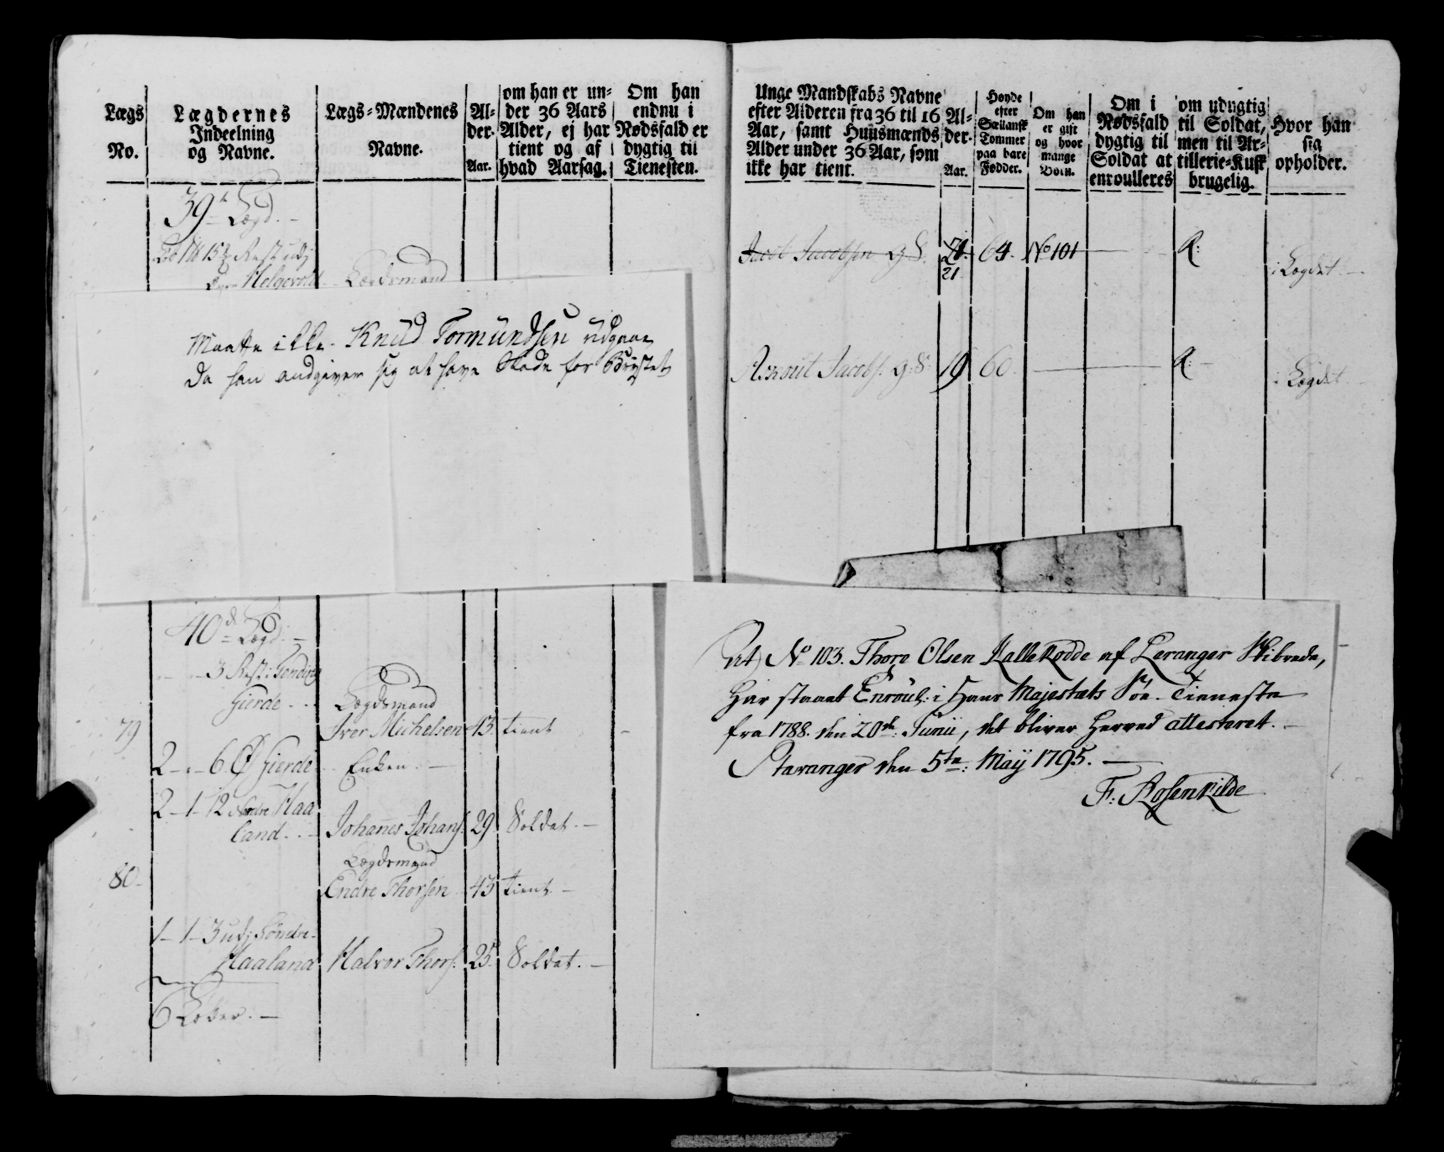 Lægs
No.
Lægdernes
Indeelning
og Navne.
Lægs-Mændenes
Navne.
Al-
der.
Aar.
om han er un-
der 36 Aars
Alder, ej har
tient og af
hvad Aarsag.
Om han
endnu i
Nødsfald er
dygtig til
Tienesten.
39te Lægd.
Lægdsmand
Maatte ikke Knud Tormundsen udgaae
da han andgiver sig at have Skade for Brystet
40de Lægd.
3
Gierde
Lægdsmand
79
Iver Michelsen 43 tient
2 6 Ø Gierde Enken.
2 1 12 Søndre Haa
land Johanes Johans. 29 Soldat.
Lægdsmand
80. Endre Thorsen 43 tient
1 1 3 Søndre
Haaland Halvor Thors. 25 Soldat.
6 Løber.
Unge Mandskabs Navne
efter Alderen fra 36 til 16
Aar, samt Huusmænds
Alder under 36 Aar, som
ikke har tient.
Al-
der.
Aar.
Høyde
efter
Siællansk
Tommer
paa bare
Fødder.
Om han
er gift
og hvor
mange
Børn.
Om i
Nødsfald
dygtig til
Soldat at
enroulleres
om udygtig
til Soldat,
men til Ar-
tillerie-Kusk
brugelig.
Hvor han
sig
opholder.
Jacobsen g. S. 64. No 101 R: i Lægdet.
21
Jacobs. g: S: 19 60. R: i Lægdet
At No 103. Thore Olsen Kallekodde af Leranger Skibrede,
har staaet Enroul: i Hans Majestæts Søe-Tieneste
fra 1788. den 20de: Junii, det bliver herved attesteret.
Stavanger den 5te: Maij 1795.
F: Rosenkilde